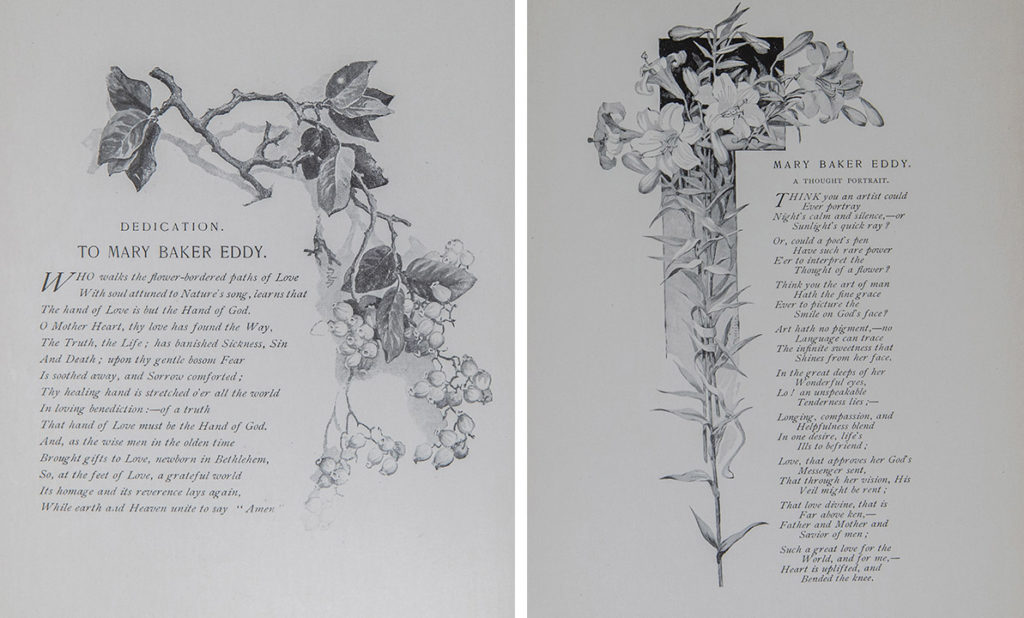 DEDICATION.
TO MARY BAKER EDDY.
WHO walks the flower-bordered paths of Love
With soul attuned to Nature's song, learns that
The hand of Love is but the Hand of God.
O Mother Heart, thy love has found the Way,
The Truth, the Life; has banished Sickness, Sin
And Death; upon thy gentle bosom Fear
Is soothed away, and Sorrow comforted;
Thy healing hand is stretched o'er all the world
In loving benediction:—of a truth
That hand of Love must be the Hand of God.
And, as the wise men in the olden time
Brought gifts to Love, newborn in Bethlehem,
So, at the feet of Love, a grateful world
Its homage and its reverence lays again,
While earth and Heaven unite to say "Amen"
MARY BAKER EDDY.
A THOUGHT PORTRAIT.
THINK you an artist could
Ever portray
Night's calm and silence,—or
Sunlight's quick ray?
Or, could a poet's pen
Have such rare power
E'er to interpret the
Thought of a flower?
Think you the art of man
Hath the fine grace
Ever to picture the
Smile on God's face?
Art hath no pigment,—no
Language can trace
The infinite sweetness that
Shines from her face.
In the great deeps of her
Wonderful eyes,
Lo! an unspeakable
Tenderness lies;—
Longing, compassion, and
Helpfulness blend
In one desire, life's
Ills to befriend;
Love, that approves her God's
Messenger sent,
That through her vision, His
Veil might be rent;
That love divine, that is
Far above ken,—
Father and Mother and
Savior of men;
Such a great love for the
World, and for me,—
Heart is uplifted, and
Bended the knee.